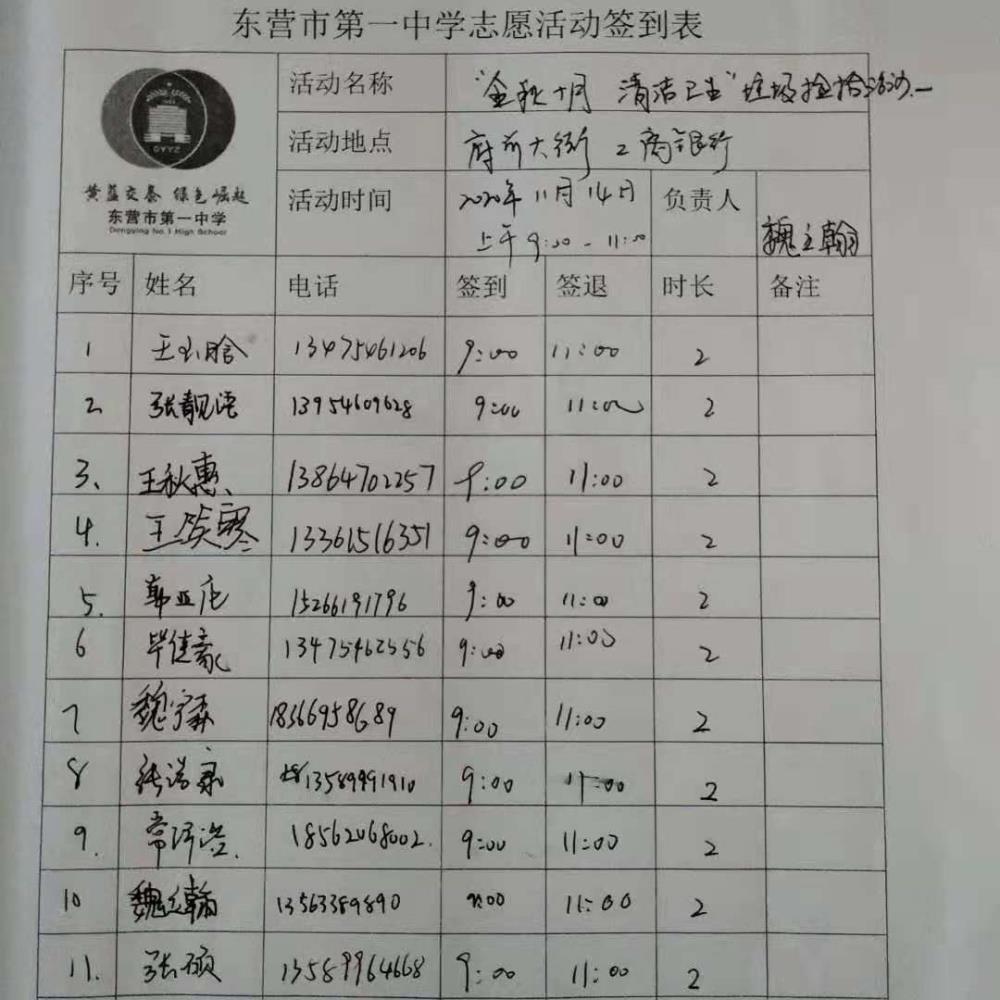 东营市第一中学志愿活动签到表
活动名称 "金秋十月 清洁卫生"垃圾捡拾活动
活动地点 府前大街 工商银行
活动时间 2020年11月14日 负责人
上午9:00-11:00 魏立翰
DYYZ
黄蓝交泰 绿色崛起
东营市第一中学
Dongying No.1 High School
序号 姓名 电话 签到 签退 时长 备注
1 王玉晗 13475461206 9:00 11:00 2
2 张靓语 13954609628 9:00 11:00 2
3、 王秋惠、 13864702257 9:00 11:00 2
4. 王 13361516351 9:00 11:00 2
5. 韩亚 15266191796 9:00 11:00 2
6 毕佳 13475462556 9:00 11:00 2
7 魏 18366958689 9:00 11:00 2
8 张浩 13589991910 9:00 11:00 2
9. 常 18562068002. 9:00 11:00 2
10 魏立翰 13563389890 9:00 11:00 2
11. 张硕 13589964668 9:00 11:00 2